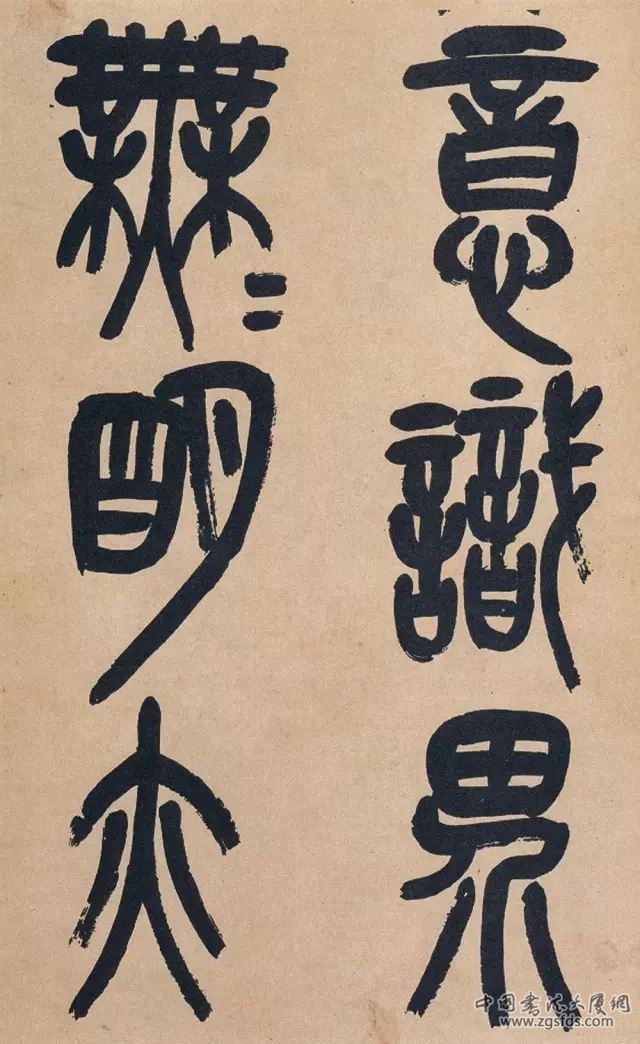 意識界
無〻明亦
中国书法大厦網
www.zgsfds.com